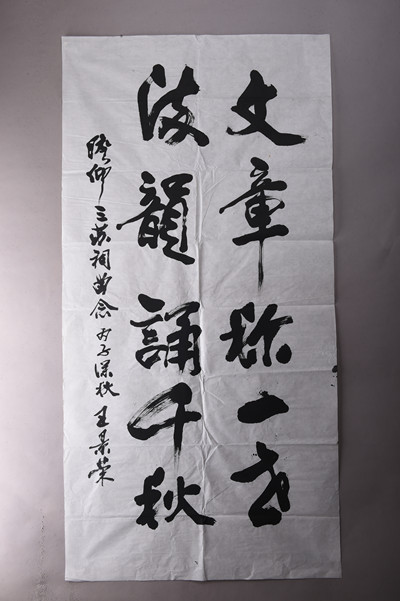 文章称一世
波韻誦千秋
瞻仰三苏祠留念 丙子深秋 王景荣